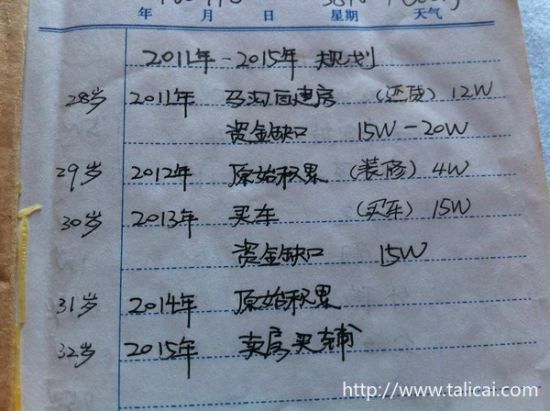 年 月 日 星期 天气
2011年-2015年 规划
28岁 2011年 马沟回建房 (还贷) 12W
资金缺口 15W-20W
29岁 2012年 原始积累 (装修) 4W
30岁 2013年 买车 (买车) 15W
资金缺口 15W
31岁 2014年 原始积累
32岁 2015年 卖房买辅
http://www.talicai.com